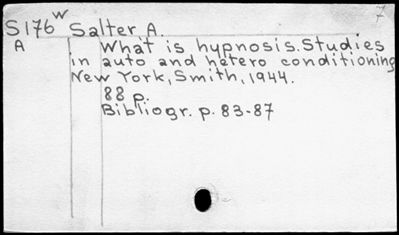 7
S176w Salter A.
A What is hypnosis. Studies
in auto and hetero conditioning
New York, Smith, 1944.
88 p.
Bibliogr. p. 83-87